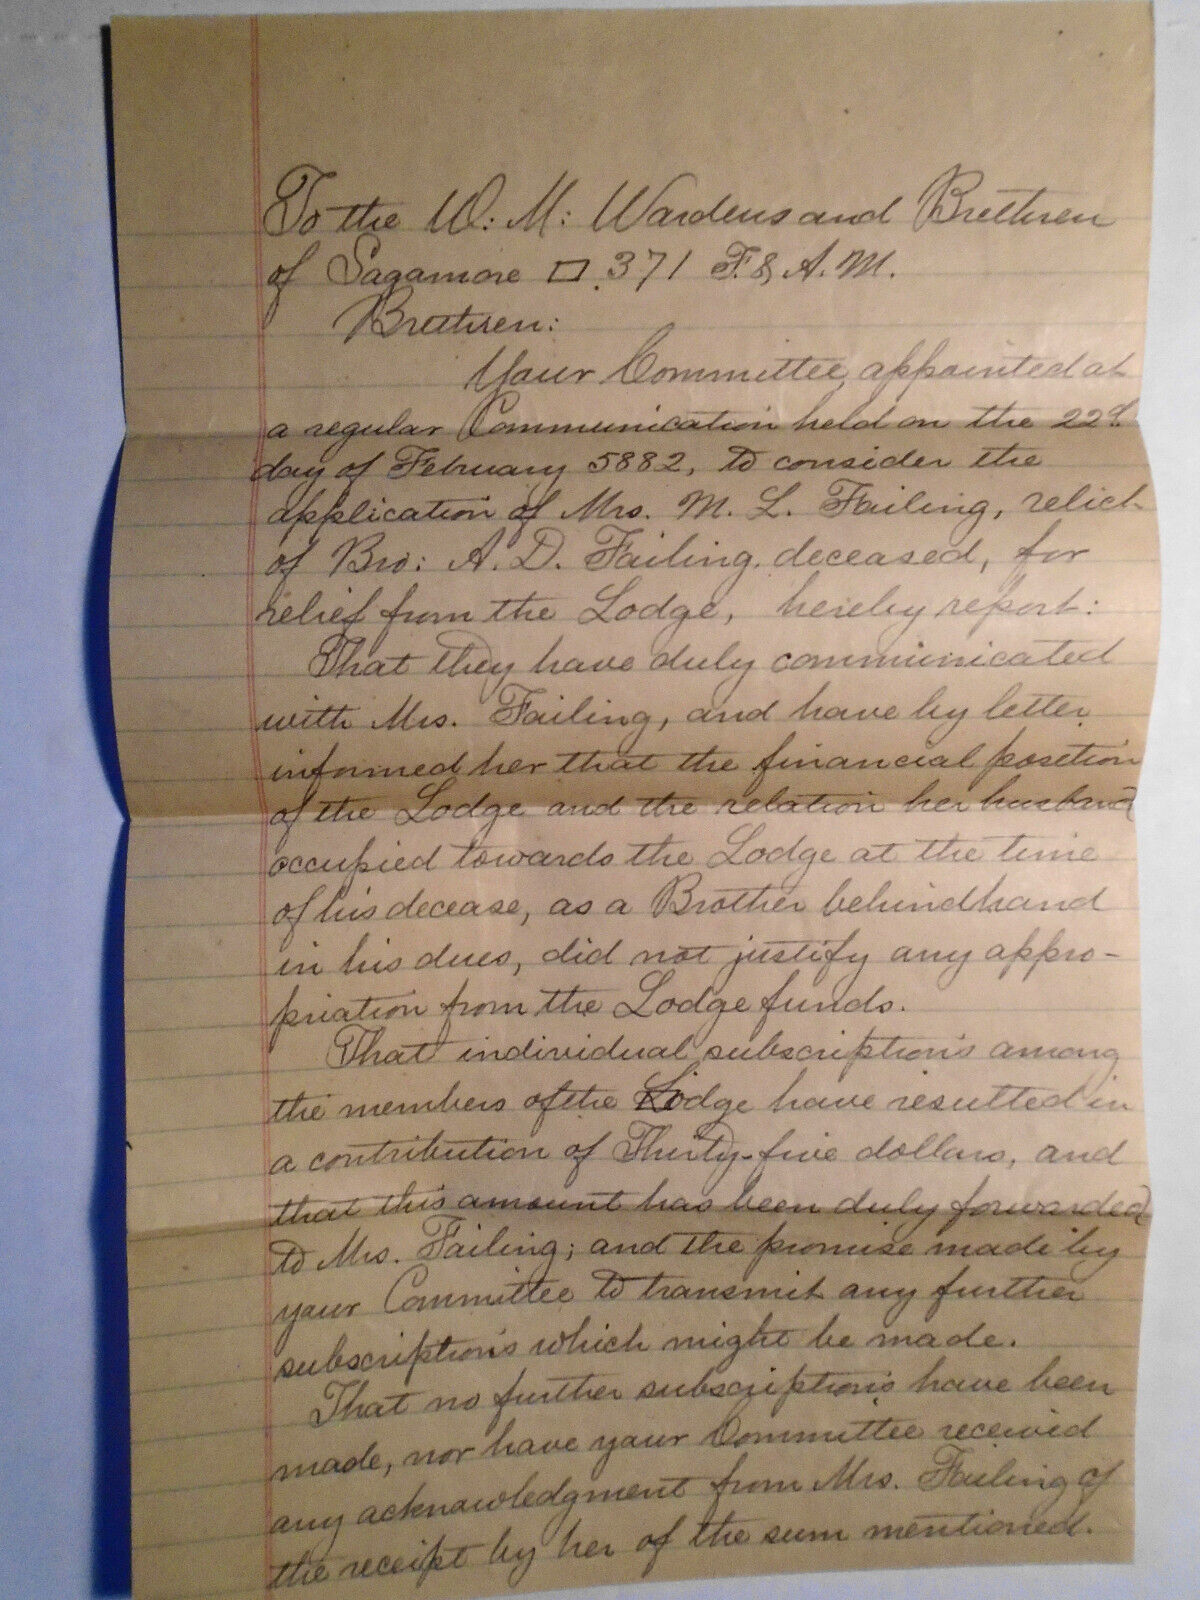 To the W. M: Wardens and Brethren
of Sagamore ▭. 371 F. & A. M.
Brethren:
Your Committee, appointed at
a regular Communication held on the 22d.
day of February 5882, to consider the
application of Mrs. M. L. Failing, relict
of Bro: A. D. Failing. deceased, for
relief from the Lodge, hereby report:
That they have duly communicated
with Mrs. Failing, and have by letter
informed her that the financial position
of the Lodge and the relation her husband
occupied towards the Lodge at the time
of his decease, as a Brother behindhand
in his dues, did not justify any appro-
priation from the Lodge funds.
That individual subscriptions among
the members of the Lodge have resulted in
a contribution of Thirty-five dollars, and
that this amount has been duly forwarded
to Mrs. Failing; and the promise made by
your Committee to transmit any further
subscriptions which might be made.
That no further subscriptions have been
made, nor have your Committee received
any acknowledgment from Mrs. Failing of
the receipt by her of the sum mentioned.